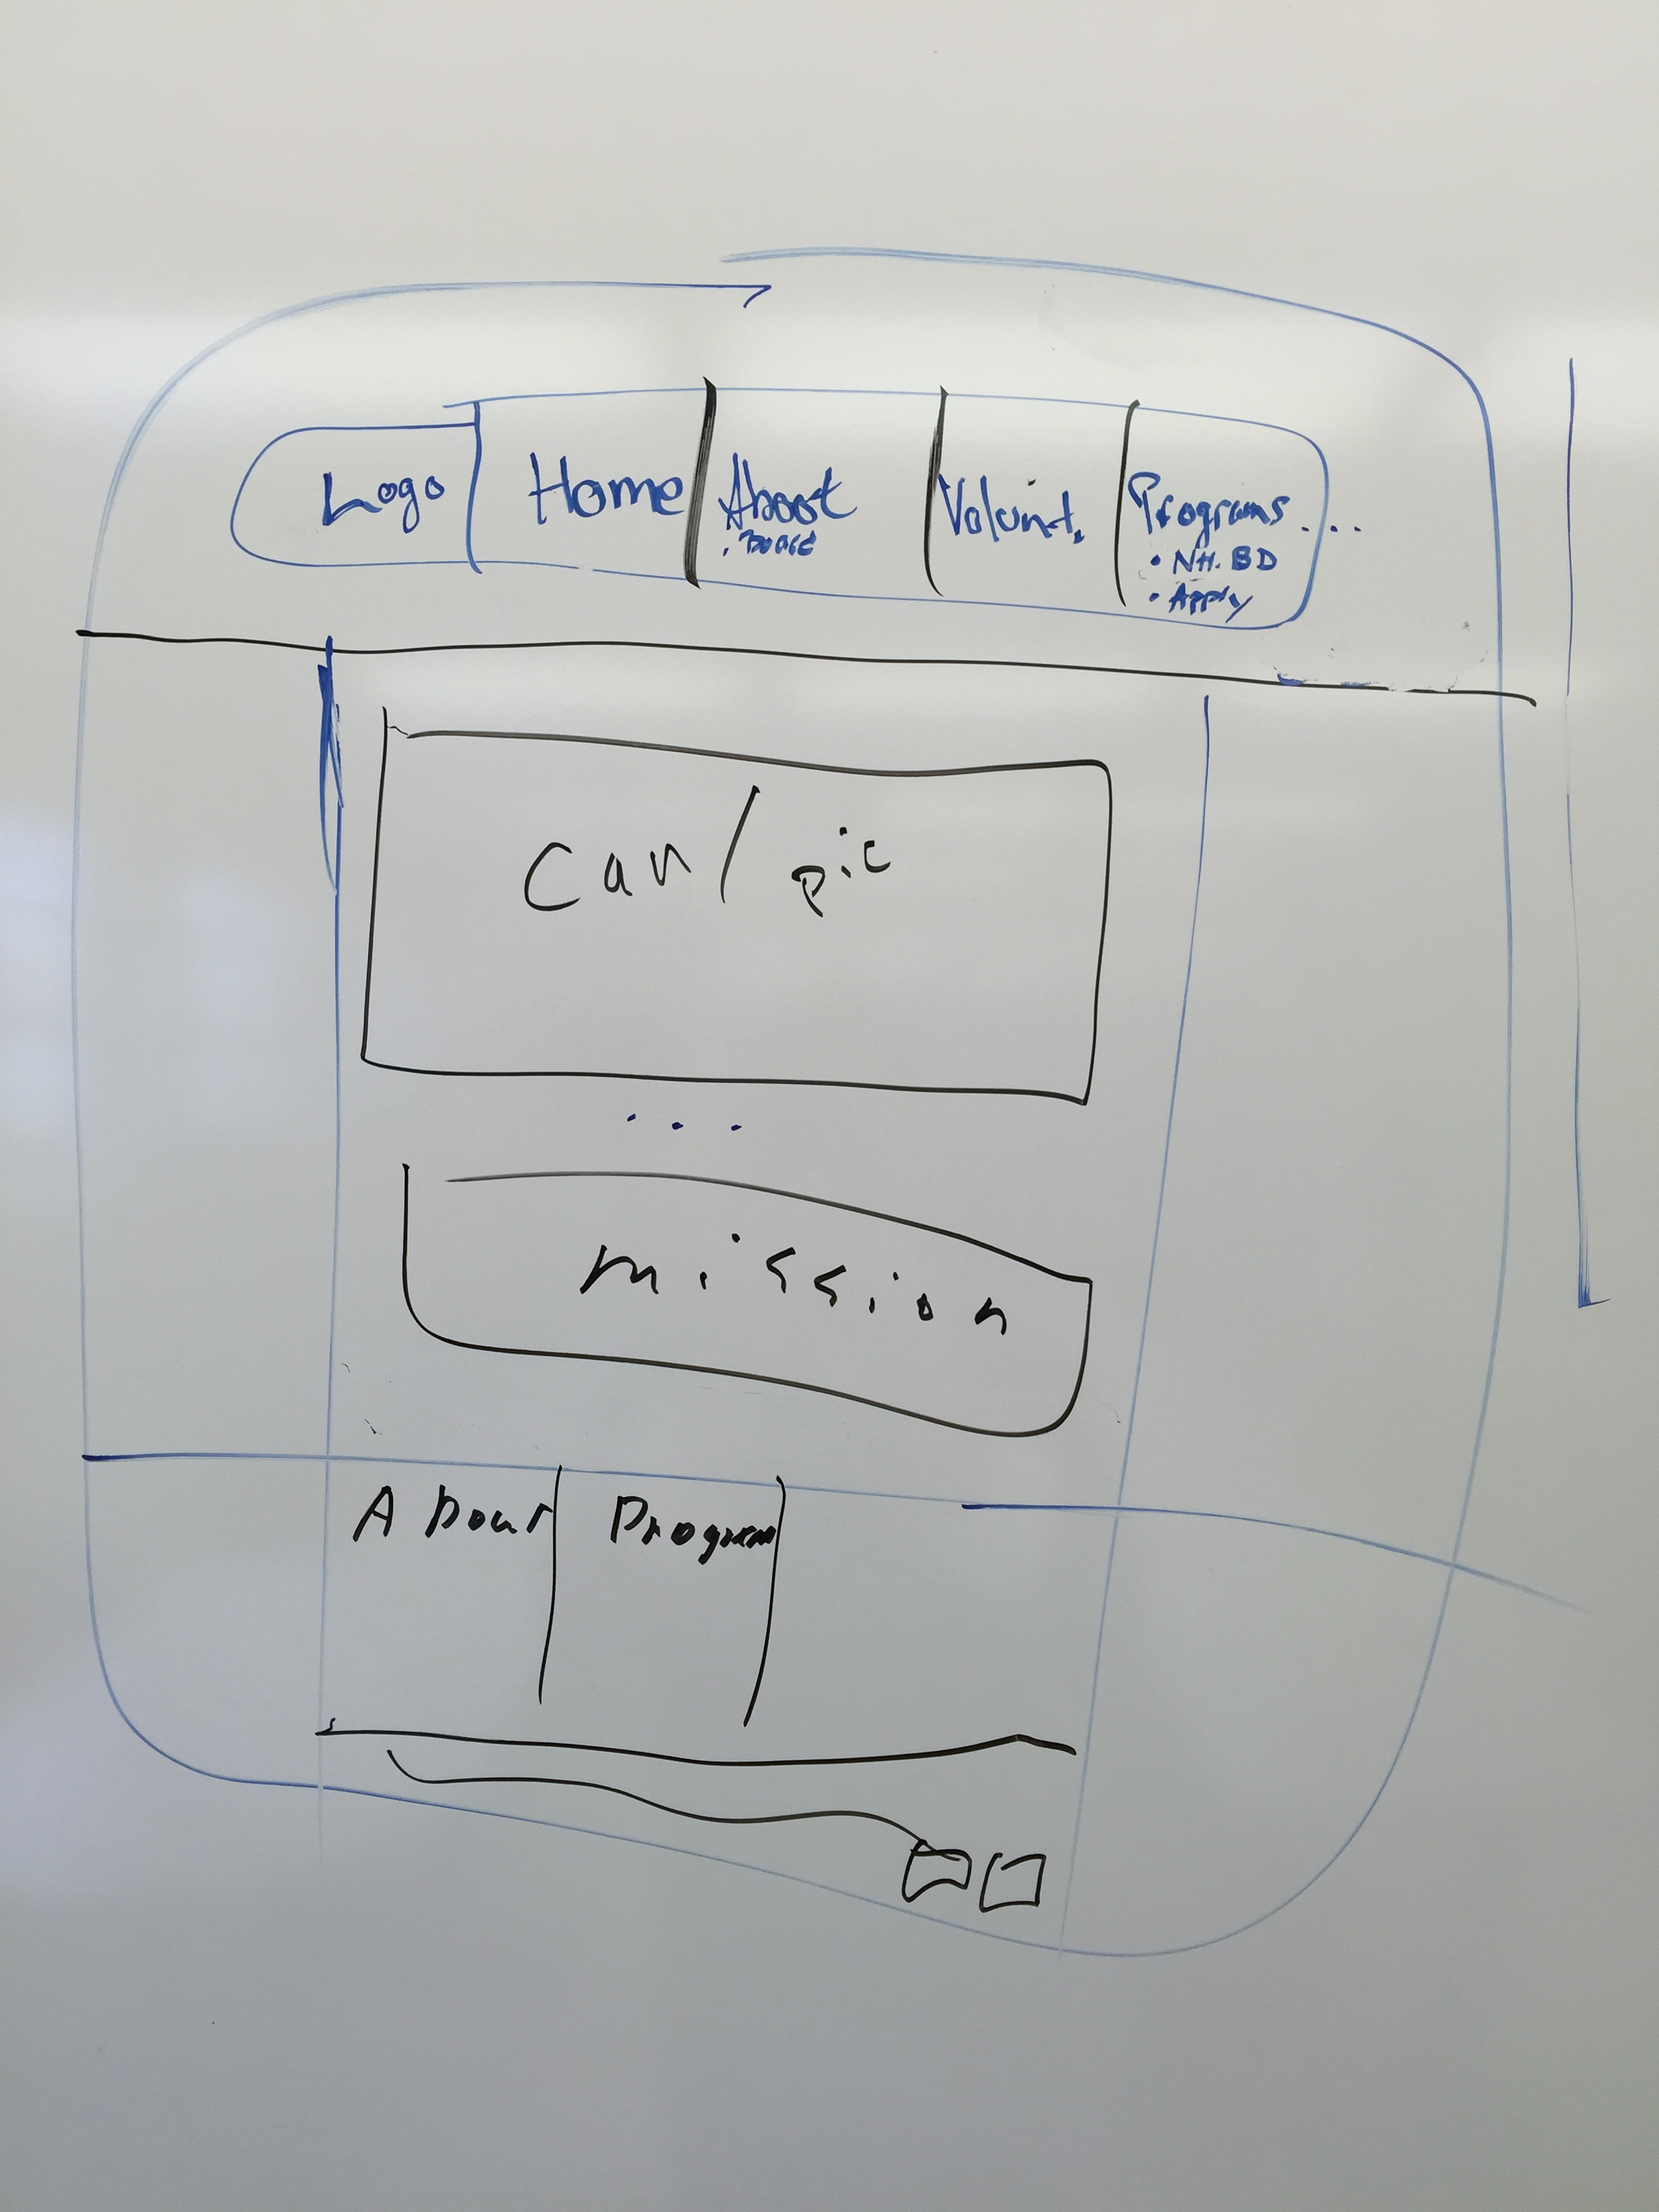 Logo
Home
About
. Board
Volunt.
Programs ....
• NH. BD
• Apply
Can / pic
...
mission
About
Program